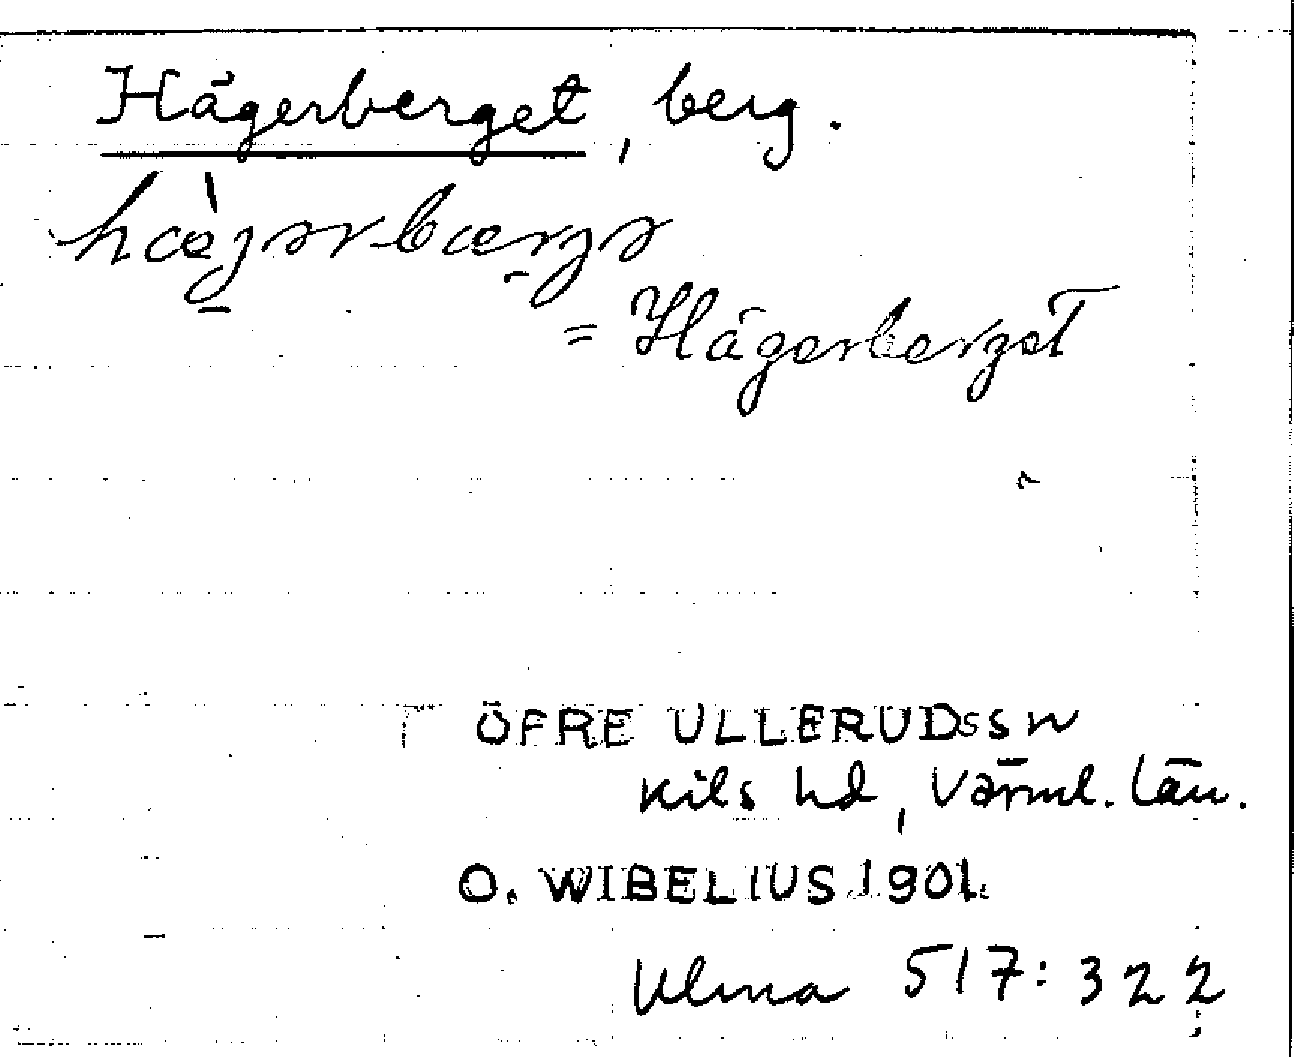 Hägerberget, berg.
hæ̀gərbærgə
= Hägerberget
ÖFRE ULLERUDSSN
Kils hd, Värml. län.
O. WIBELIUS 1901.
Ulma 517:322